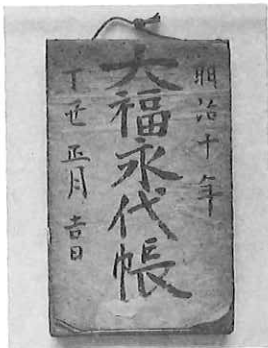 明治十年
大福永代帳
丁丑 正月 吉日